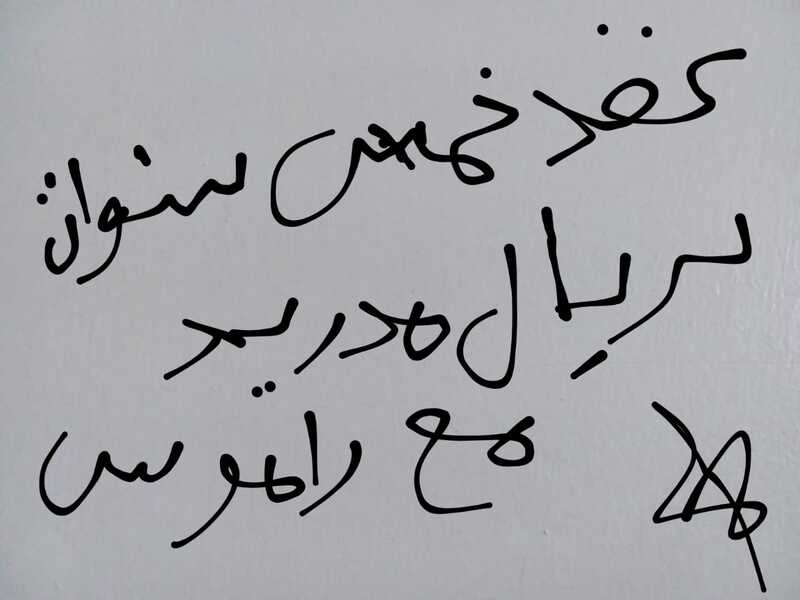 عقد خمس سنوات
لريال مدريد
مع راموس